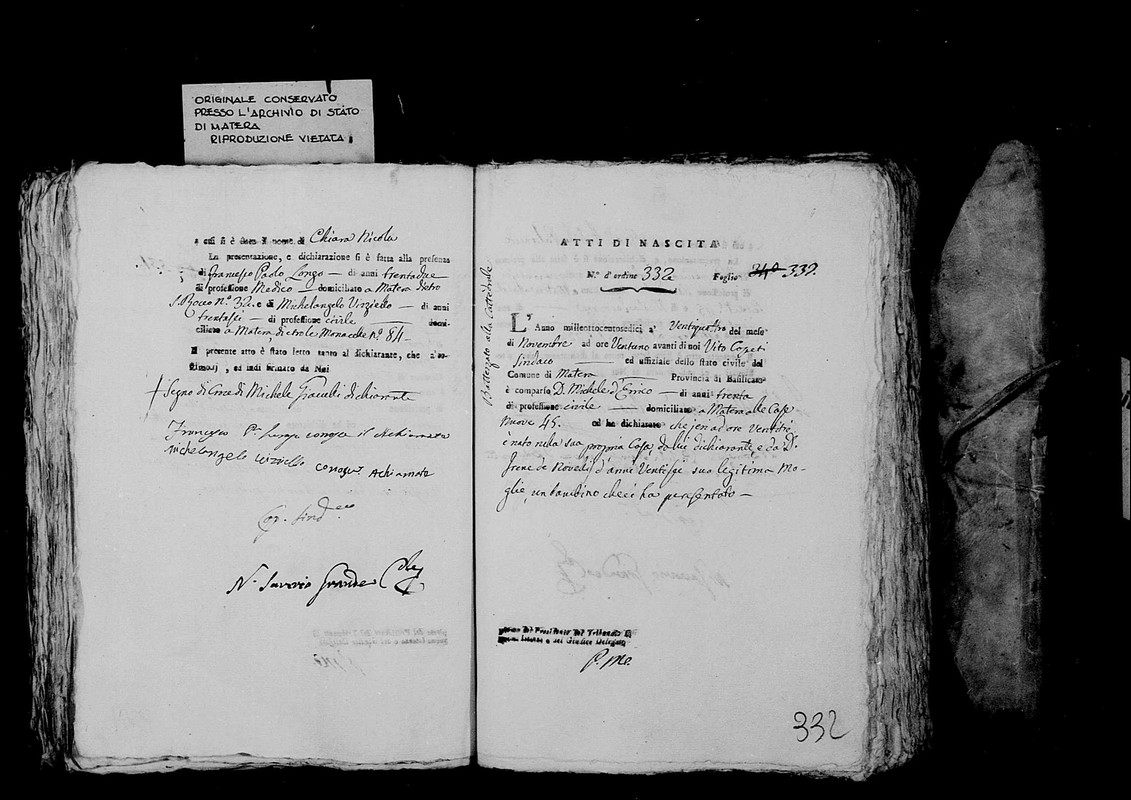 ORIGINALE CONSERVATO
PRESSO L'ARCHIVIO DI STATO
DI MATERA
RIPRODUZIONE VIETATA
a cui si è dato il nome di Chiara Nicola
La presentazione, e dichiarazione si è fatta alla presenza
di Francesco Paolo Longo — di anni trentadue
di professione Medico — domiciliato a Matera dietro
S. Rocco n.º 32. e di Michelangelo Urziello — di anni
trentasei — di professione civile — domi-
ciliato a Matera, dietro le Monacelle n.º 84 —
Il presente atto è stato letto tanto al dichiarante, che a'te-
stimonj, ed indi firmato da Noi
Segno di Croce di Michele dichiarante
Francesco P. Longo conosco il dichiarante
Michelangelo Urziello conosco
N. Saverio Grande
Battezzato alla Cattedrale
ATTI DI NASCITA
N.º d'ordine 332 Foglio 340 332.
L'Anno milleottocentosedici a' Ventiquattro del mese
di Novembre ad ore Ventuno avanti di noi Vito
Sindaco — ed uffiziale dello stato civile del
Comune di Matera — Provincia di Basilicata
è comparso D. Michele d'Errico — di anni trenta
di professione civile — domiciliato a Matera alle Case
Nuove 45. ed ha dichiarato che jeri ad ore Ventitré
è nato nella sua propria Casa, da lui dichiarante, e da D.ª
Irene de Novellis d'anni Ventisei sua legitima Mo-
glie, un bambino che ci ha presentato —
332